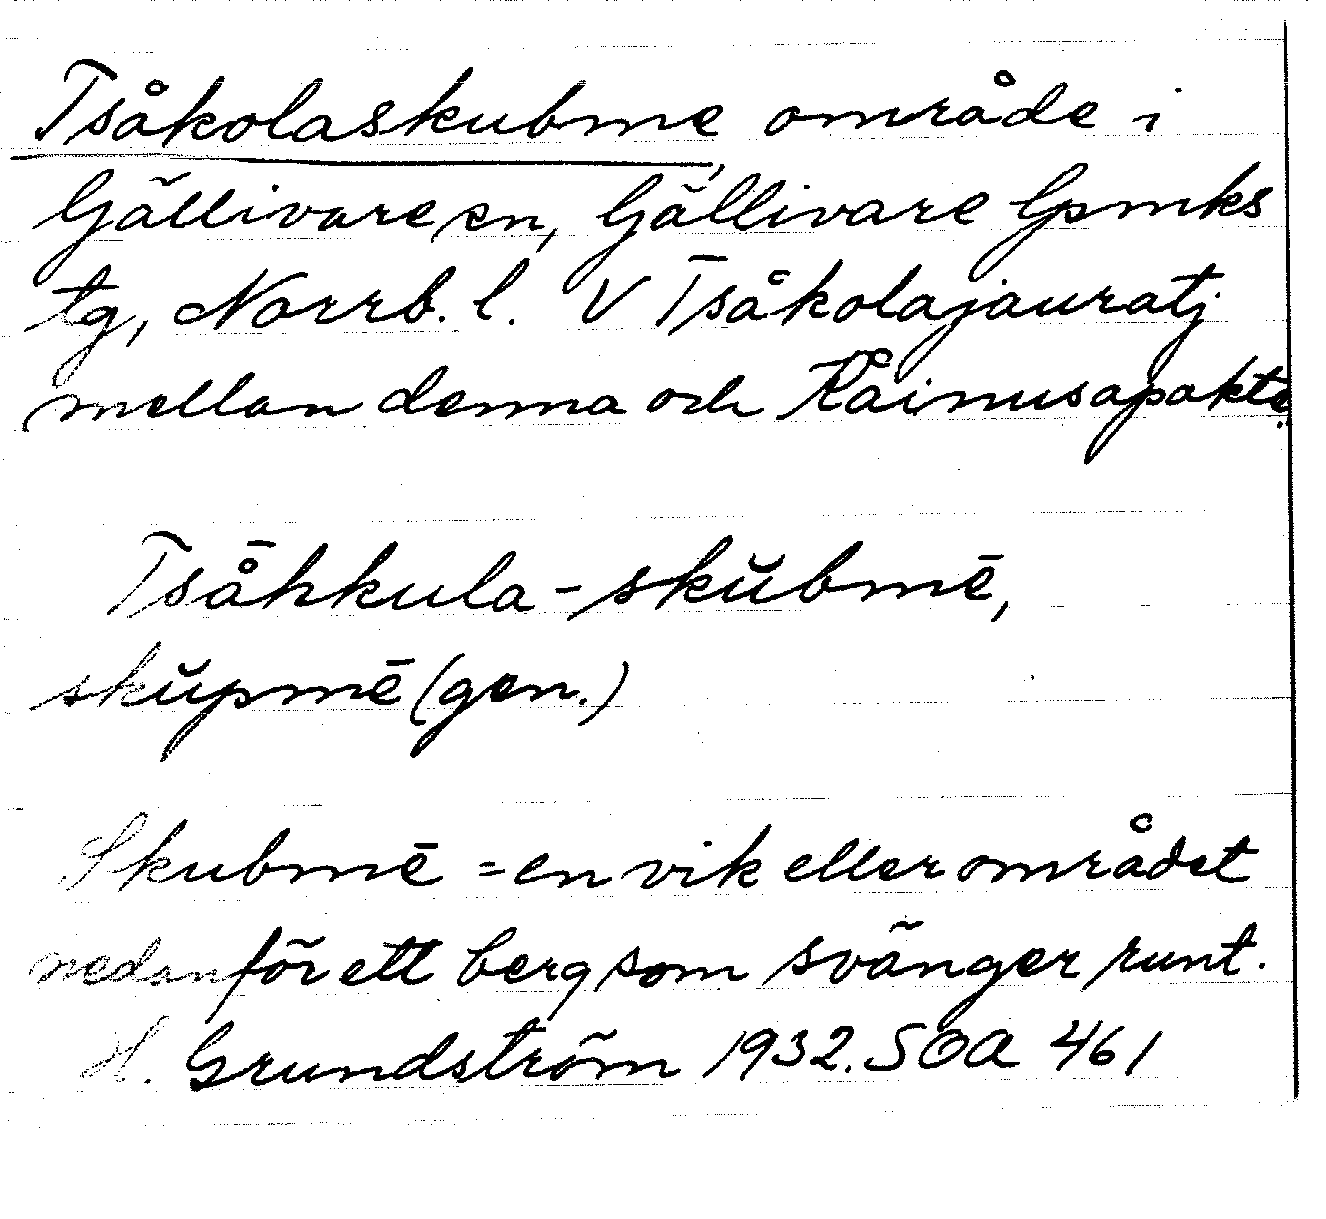 Tsåkolaskubme, område i
Gällivare sn, Gällivare lpmks
tg, Norrb. l. V Tsåkolajauratj
mellan denna och Råinusapakte.
Tså̄hkula-skŭbmē,
skŭpmē (gen.)
Skubmē = en vik eller området
nedanför ett berg som svänger runt.
H. Grundström 1932. SOA 461